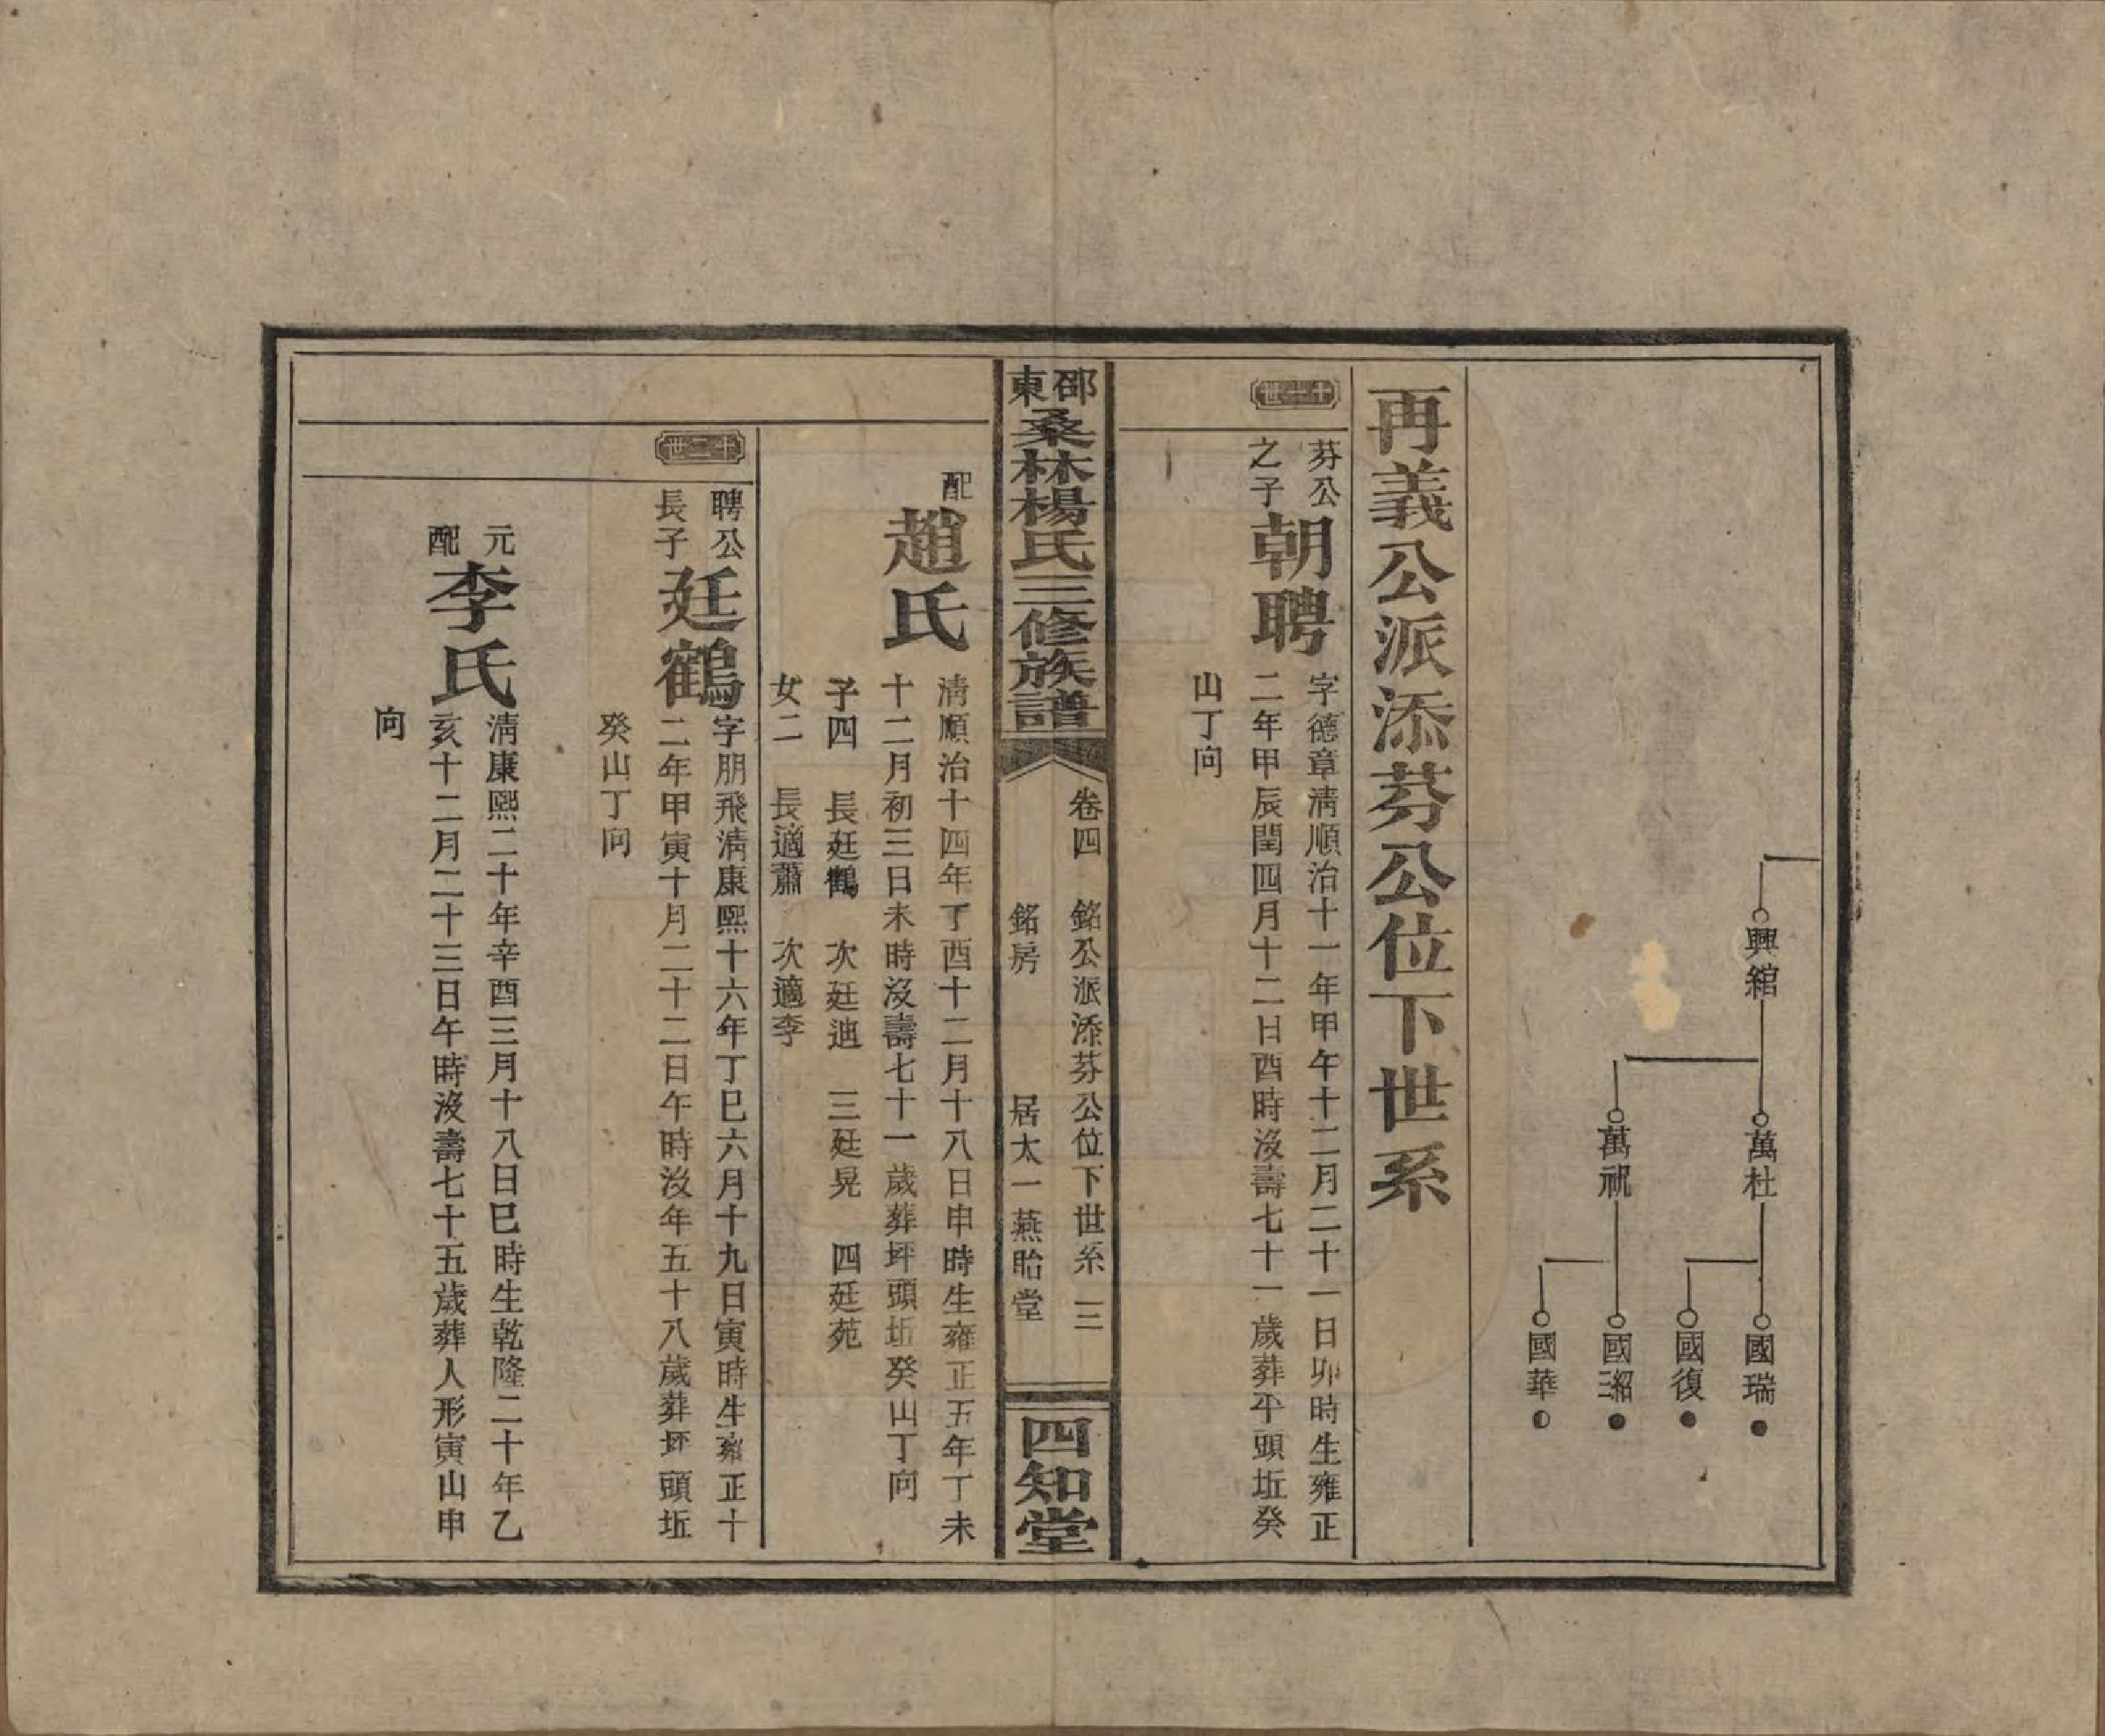 興綰
萬杜
萬祝
國瑞
國復
國紹
國華
再義公派添芬公位下世系
十一世
芬公
之子
朝聘
字德章淸順治十一年甲午十二月二十一日卯時生雍正
二年甲辰閏四月十二日酉時沒壽七十一歲葬平頭坵癸
山丁向
邵東
桑林楊氏三修族譜
卷四 銘公派添芬公位下世系 三
銘房 居太一燕貽堂
四知堂
配
趙氏
淸順治十四年丁酉十二月十八日申時生雍正五年丁未
十二月初三日未時沒壽七十一歲葬坪頭坵癸山丁向
子四 長廷鶴 次廷迪 三廷晃 四廷苑
女二 長適蕭 次適李
十二世
聘公
長子
廷鶴
字朋飛淸康熙十六年丁巳六月十九日寅時生雍正十
二年甲寅十月二十二日午時沒年五十八歲葬坪頭坵
癸山丁向
元
配
李氏
淸康熙二十年辛酉三月十八日巳時生乾隆二十年乙
亥十二月二十三日午時沒壽七十五歲葬人形寅山申
向